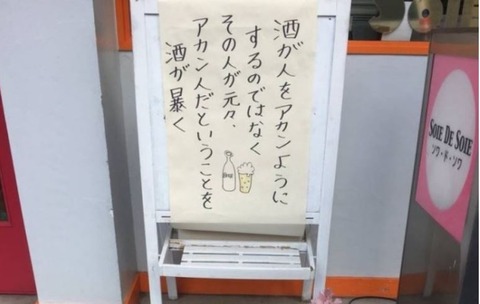 酒が人をアカンように
するのではなく
その人が元々、
アカン人だということを
酒が暴く
SOIE DE SOIE
ソワ・ド・ソワ